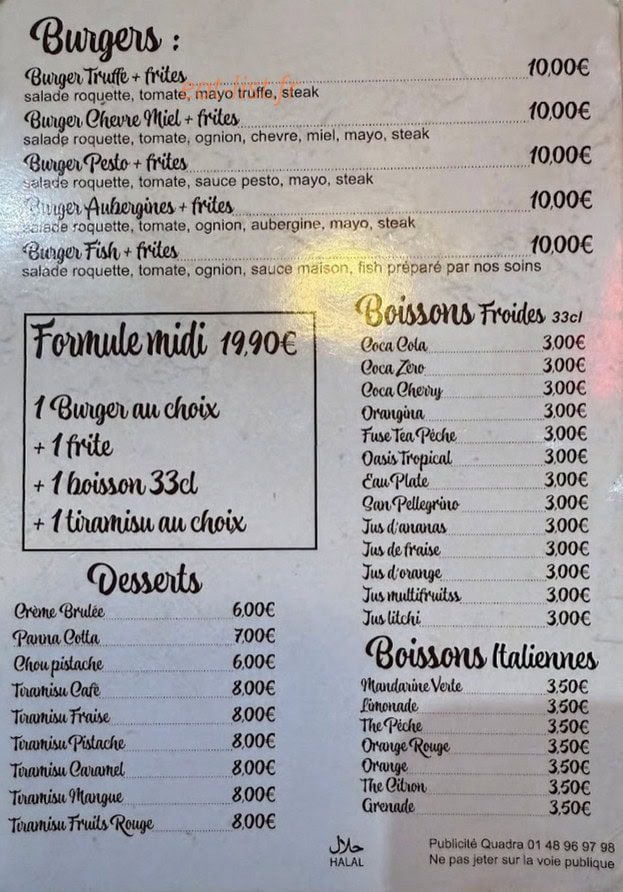 Burgers :
Burger Truffe + frites 10,00€
salade roquette, tomate, mayo truffe, steak
Burger Chevre Miel + frites 10,00€
salade roquette, tomate, ognion, chevre, miel, mayo, steak
Burger Pesto + frites 10,00€
salade roquette, tomate, sauce pesto, mayo, steak
Burger Aubergines + frites 10,00€
salade roquette, tomate, ognion, aubergine, mayo, steak
Burger Fish + frites 10,00€
salade roquette, tomate, ognion, sauce maison, fish préparé par nos soins
Formule midi 19,90€
1 Burger au choix
+ 1 frite
+ 1 boisson 33cl
+ 1 tiramisu au choix
Desserts
Crème Brulée 6,00€
Panna Cotta 7,00€
Chou pistache 6,00€
Tiramisu Café 8,00€
Tiramisu Fraise 8,00€
Tiramisu Pistache 8,00€
Tiramisu Caramel 8,00€
Tiramisu Mangue 8,00€
Tiramisu Fruits Rouge 8,00€
Boissons Froides 33cl
Coca Cola 3,00€
Coca Zero 3,00€
Coca Cherry 3,00€
Orangina 3,00€
Fuse Tea Pêche 3,00€
Oasis Tropical 3,00€
Eau Plate 3,00€
San Pellegrino 3,00€
Jus d'ananas 3,00€
Jus de fraise 3,00€
Jus d'orange 3,00€
Jus multifruitss 3,00€
Jus litchi 3,00€
Boissons Italiennes
Mandarine Verte 3,50€
Limonade 3,50€
The Pêche 3,50€
Orange Rouge 3,50€
Orange 3,50€
The Citron 3,50€
Grenade 3,50€
حلال
HALAL
Publicité Quadra 01 48 96 97 98
Ne pas jeter sur la voie publique